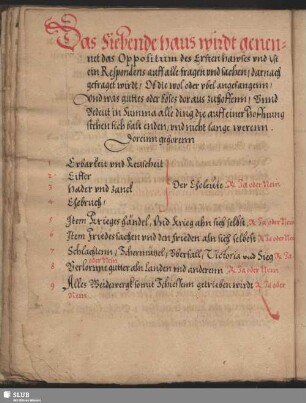 Das Siebende haus wirdt genen-
net das Oppositum des Ersten hauses vnd ist
ein Respondens auff alle fragen vnd sachen, darnach
gefraget wirdt, Ob die wol oder vbel angefangenn,
Vnd was guttes oder böses daraus zuhoffenn, Vnnd
Bedeut in Summa alle ding die auff einer Hoffnung
stehen sich bald enden, vnd nicht lang weren.
Dorein gehorenn
1 Erbarkeit vnd Keuscheit
2 Eiffer
3 Hader vnd zanck
Der Eheleute R. Ja oder Nein.
4 Ehebruch
5 Item Krieges handel, Vnd Krieg ahn sich selbst, R. Ja oder Nein.
6 Item Friedes sachen vnd den frieden ahn sich selbest R. Ja oder Nein
7 Schlachtenn, Scharmützel, Vberfall, Victoria vnd Sieg R. Ja
oder Nein
8 Verlorne gutter ahn Landen vnd anderem R. Ja oder Nein.
9 Alles Weidwergk so mit Schiessenn getrieben wirdt R. Ja oder
Nein.
SLUB